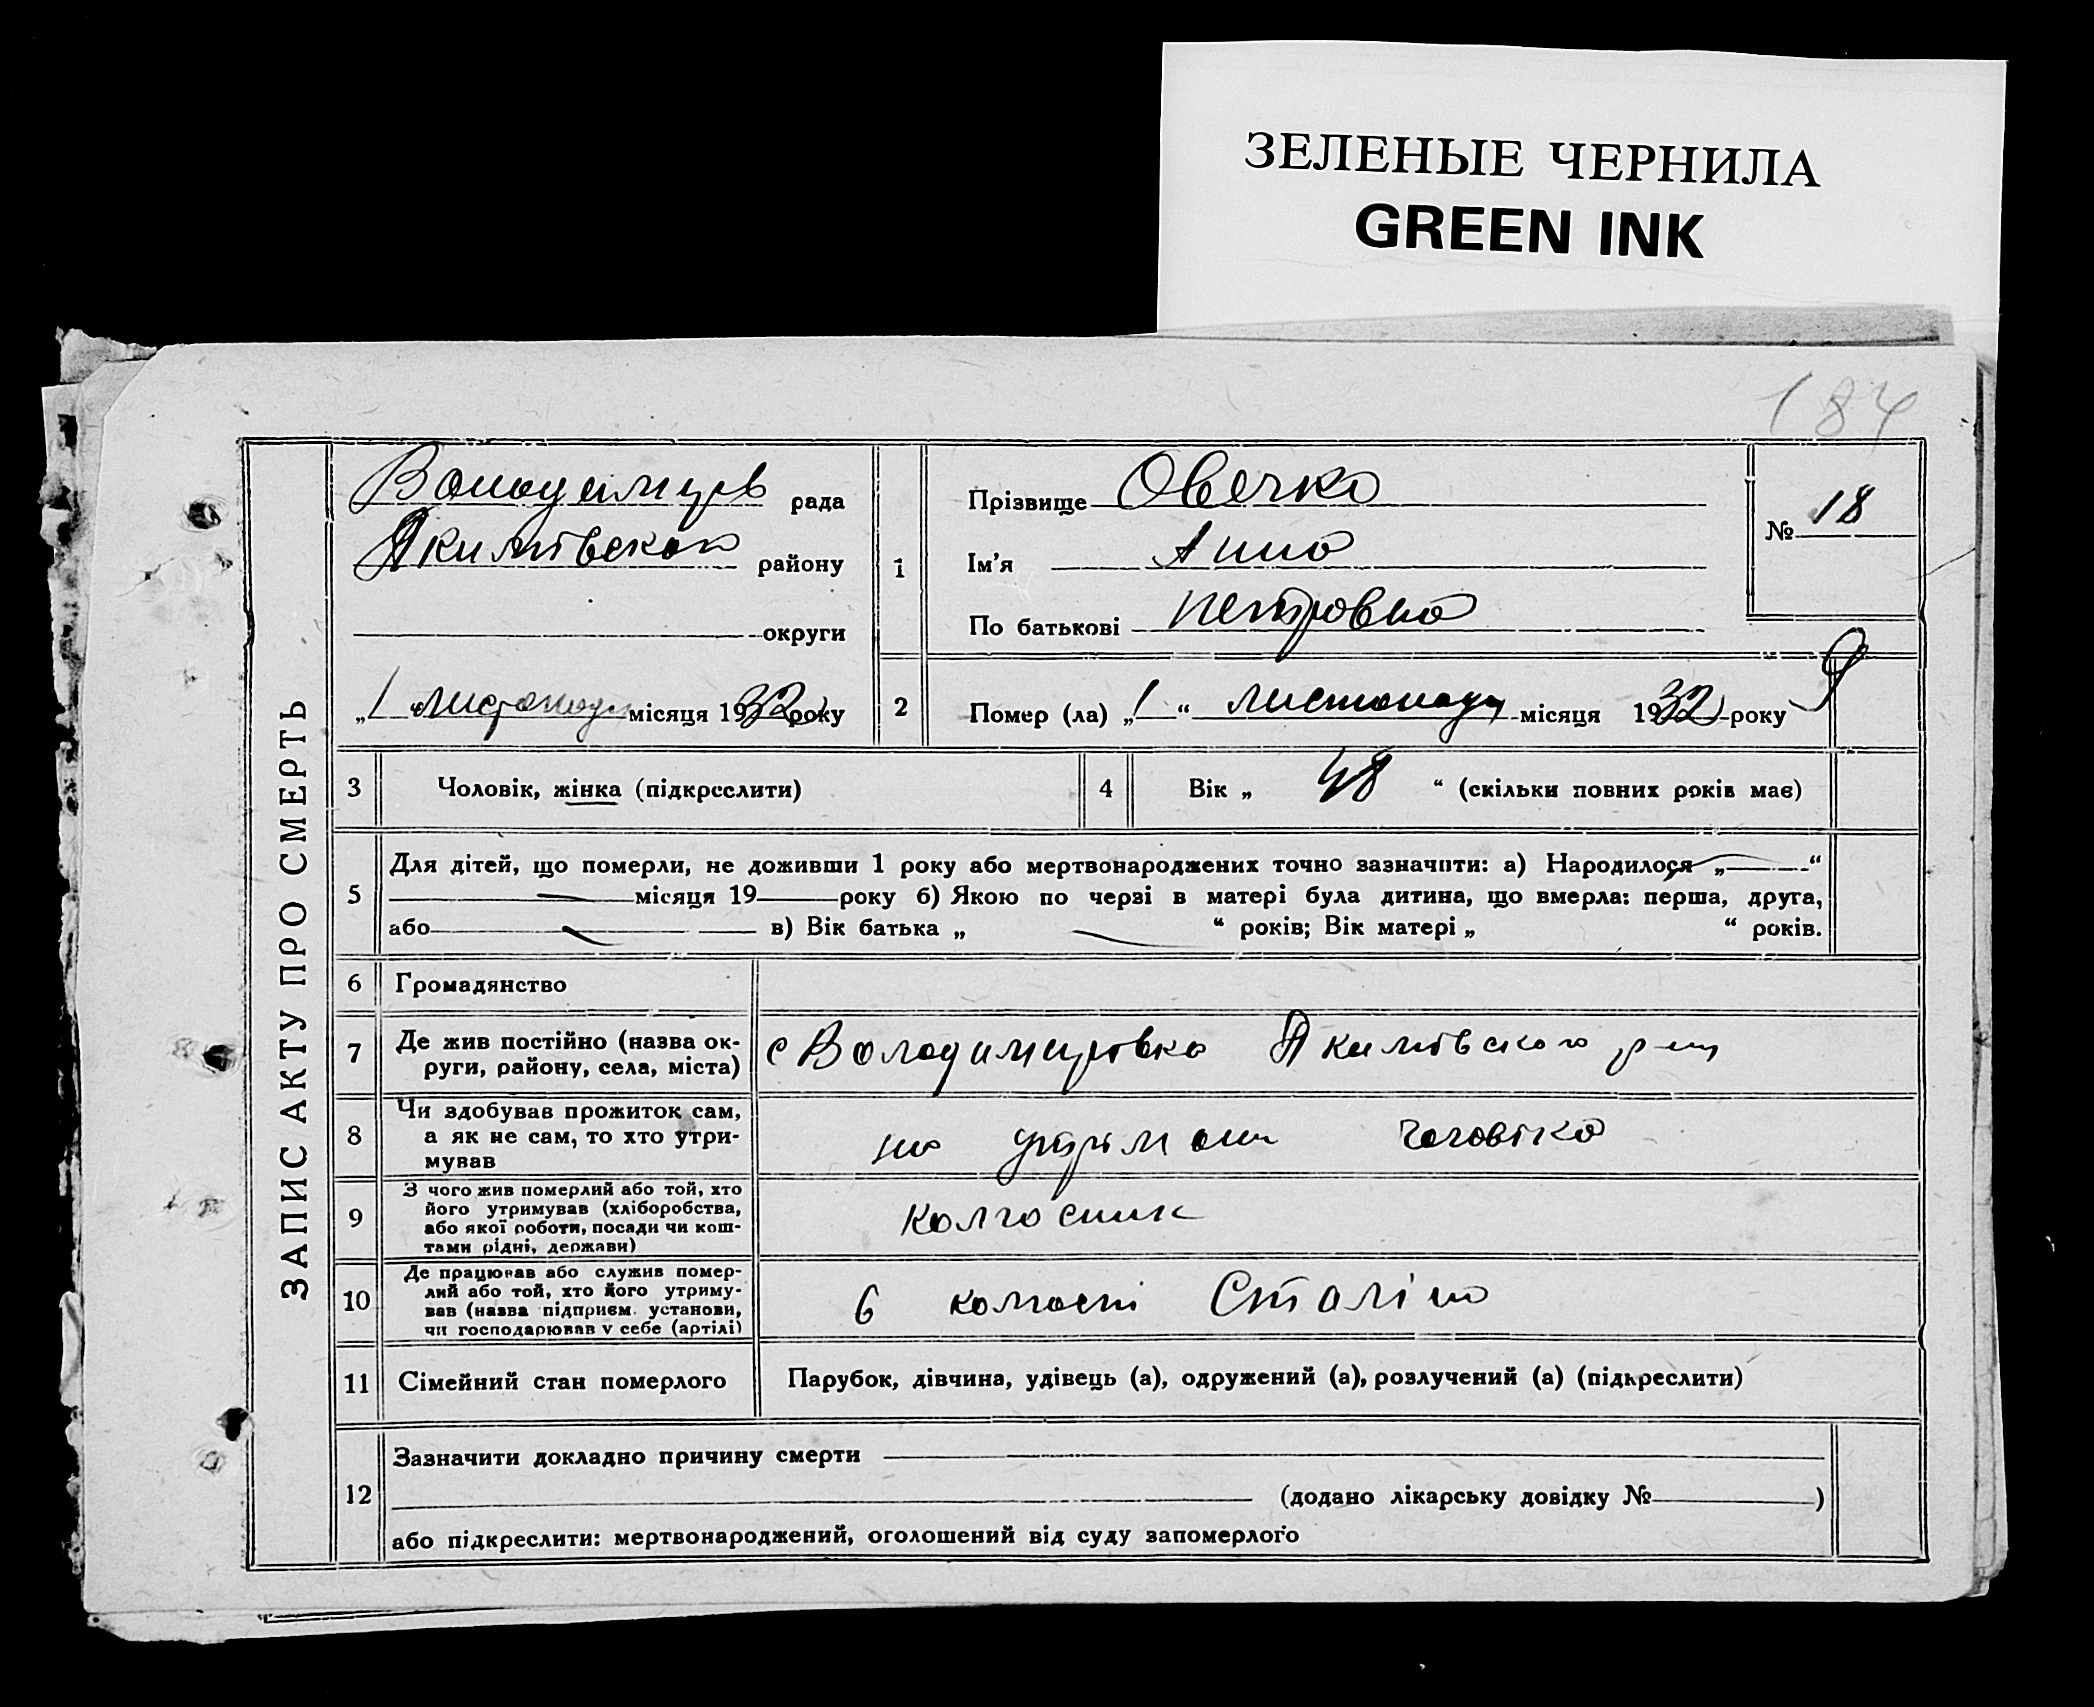 ЗЕЛЕНЫЕ ЧЕРНИЛА
GREEN INK
184
ЗАПИС АКТУ ПРО СМЕРТЬ
Володимирів рада
Якимівского району
округи
„1“ листопада місяця 1932 року
1
Прізвище Овечко
Ім'я Анна
По батькові Петровна
№ 18
2 Помер (ла) „1“ листопада місяця 1932 року
3 Чоловік, жінка (підкреслити)
4 Вік „48“ (скільки повних років має)
5 Для дітей, що померли, не доживши 1 року або мертвонароджених точно зазначити: а) Народилося „ “
місяця 19 року б) Якою по черзі в матері була дитина, що вмерла: перша, друга,
або в) Вік батька „ “ років; Вік матері „ “ років.
6 Громадянство
7 Де жив постійно (назва ок-
руги, району, села, міста)
с Володимировка Якимівского р-ну
8 Чи здобував прожиток сам,
а як не сам, то хто утри-
мував
на утриман чоловіка
9 З чого жив померлий або той, хто
його утримував (хліборобства,
або якої роботи, посади чи кош-
тами рідні, держави)
колгосник
10 Де працював або служив помер-
лий або той, хто його утриму-
вав (назва підприєм. установи,
чи господарював у себе (артілі)
в колгоспі Сталіна
11 Сімейний стан померлого
Парубок, дівчина, удівець (а), одружений (а), розлучений (а) (підкреслити)
12 Зазначити докладно причину смерти
(додано лікарську довідку № )
або підкреслити: мертвонароджений, оголошений від суду запомерлого